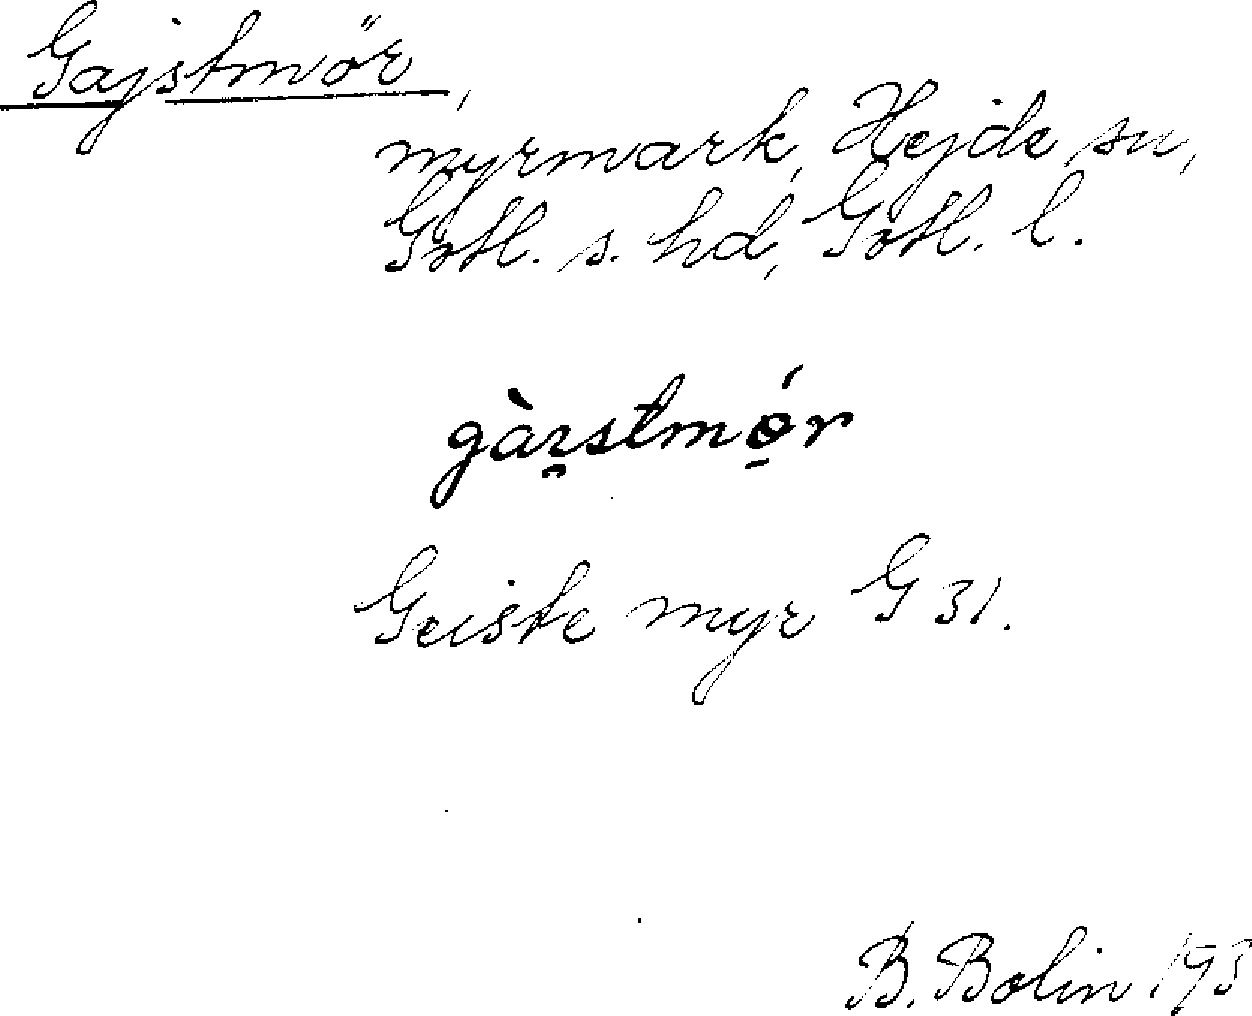 Gajstmör,
myrmark, Hejde sn,
Gotl. s. hd, Gotl. l.
Geiste myr G 31.
B. Bolin 193